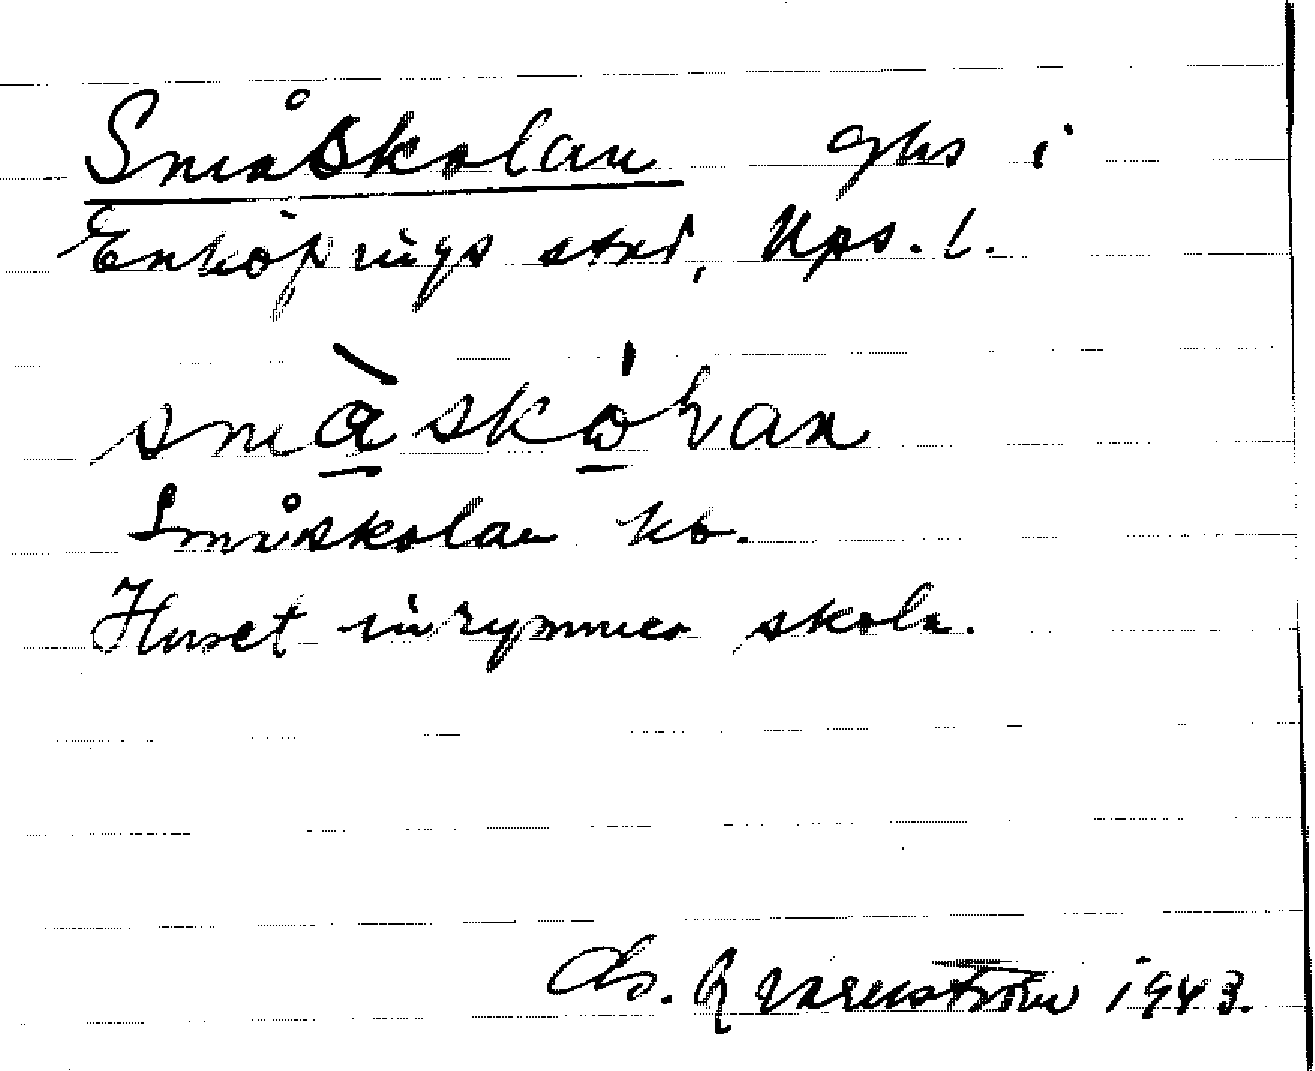 Småskolan ghs i
Enköpings stad, Ups. l.
småskolan
Småskolan kb.
Huset inrymmer skola.
Qvarnström 1943.